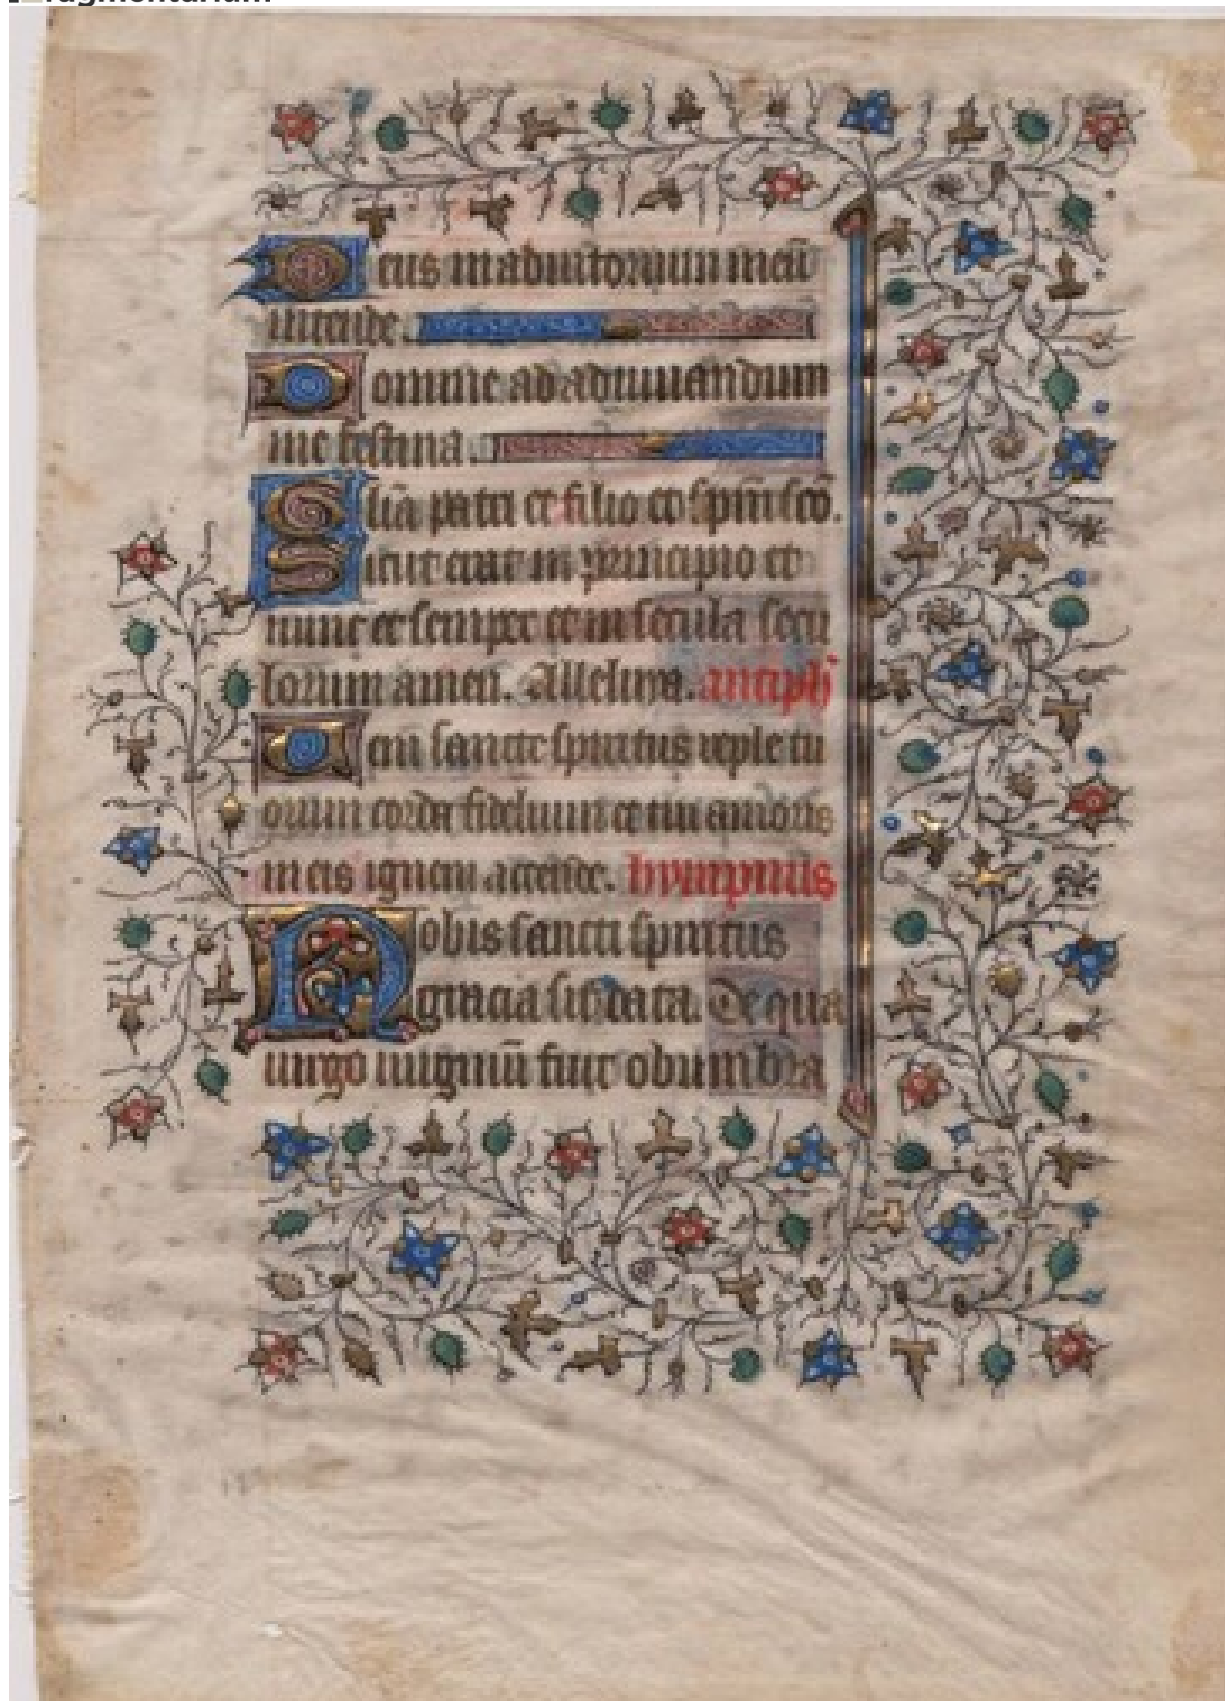 Deus in adiutorium meū
intende.
Domine ad adiuuandum
me festina.
Glīa patri et filio et spm̄ scō.
Sicut erat in principio et
nunc et semper et in secula secu
lorum amen. Alleluya. antiph̄
Ueni sancte spiritus reple tu
orum corda fidelium et tui amoris
in eis ignem accende. hympnus
Nobis sancti spiritus
gracia sit data. De qua
uirgo uirginū fuit obumbra